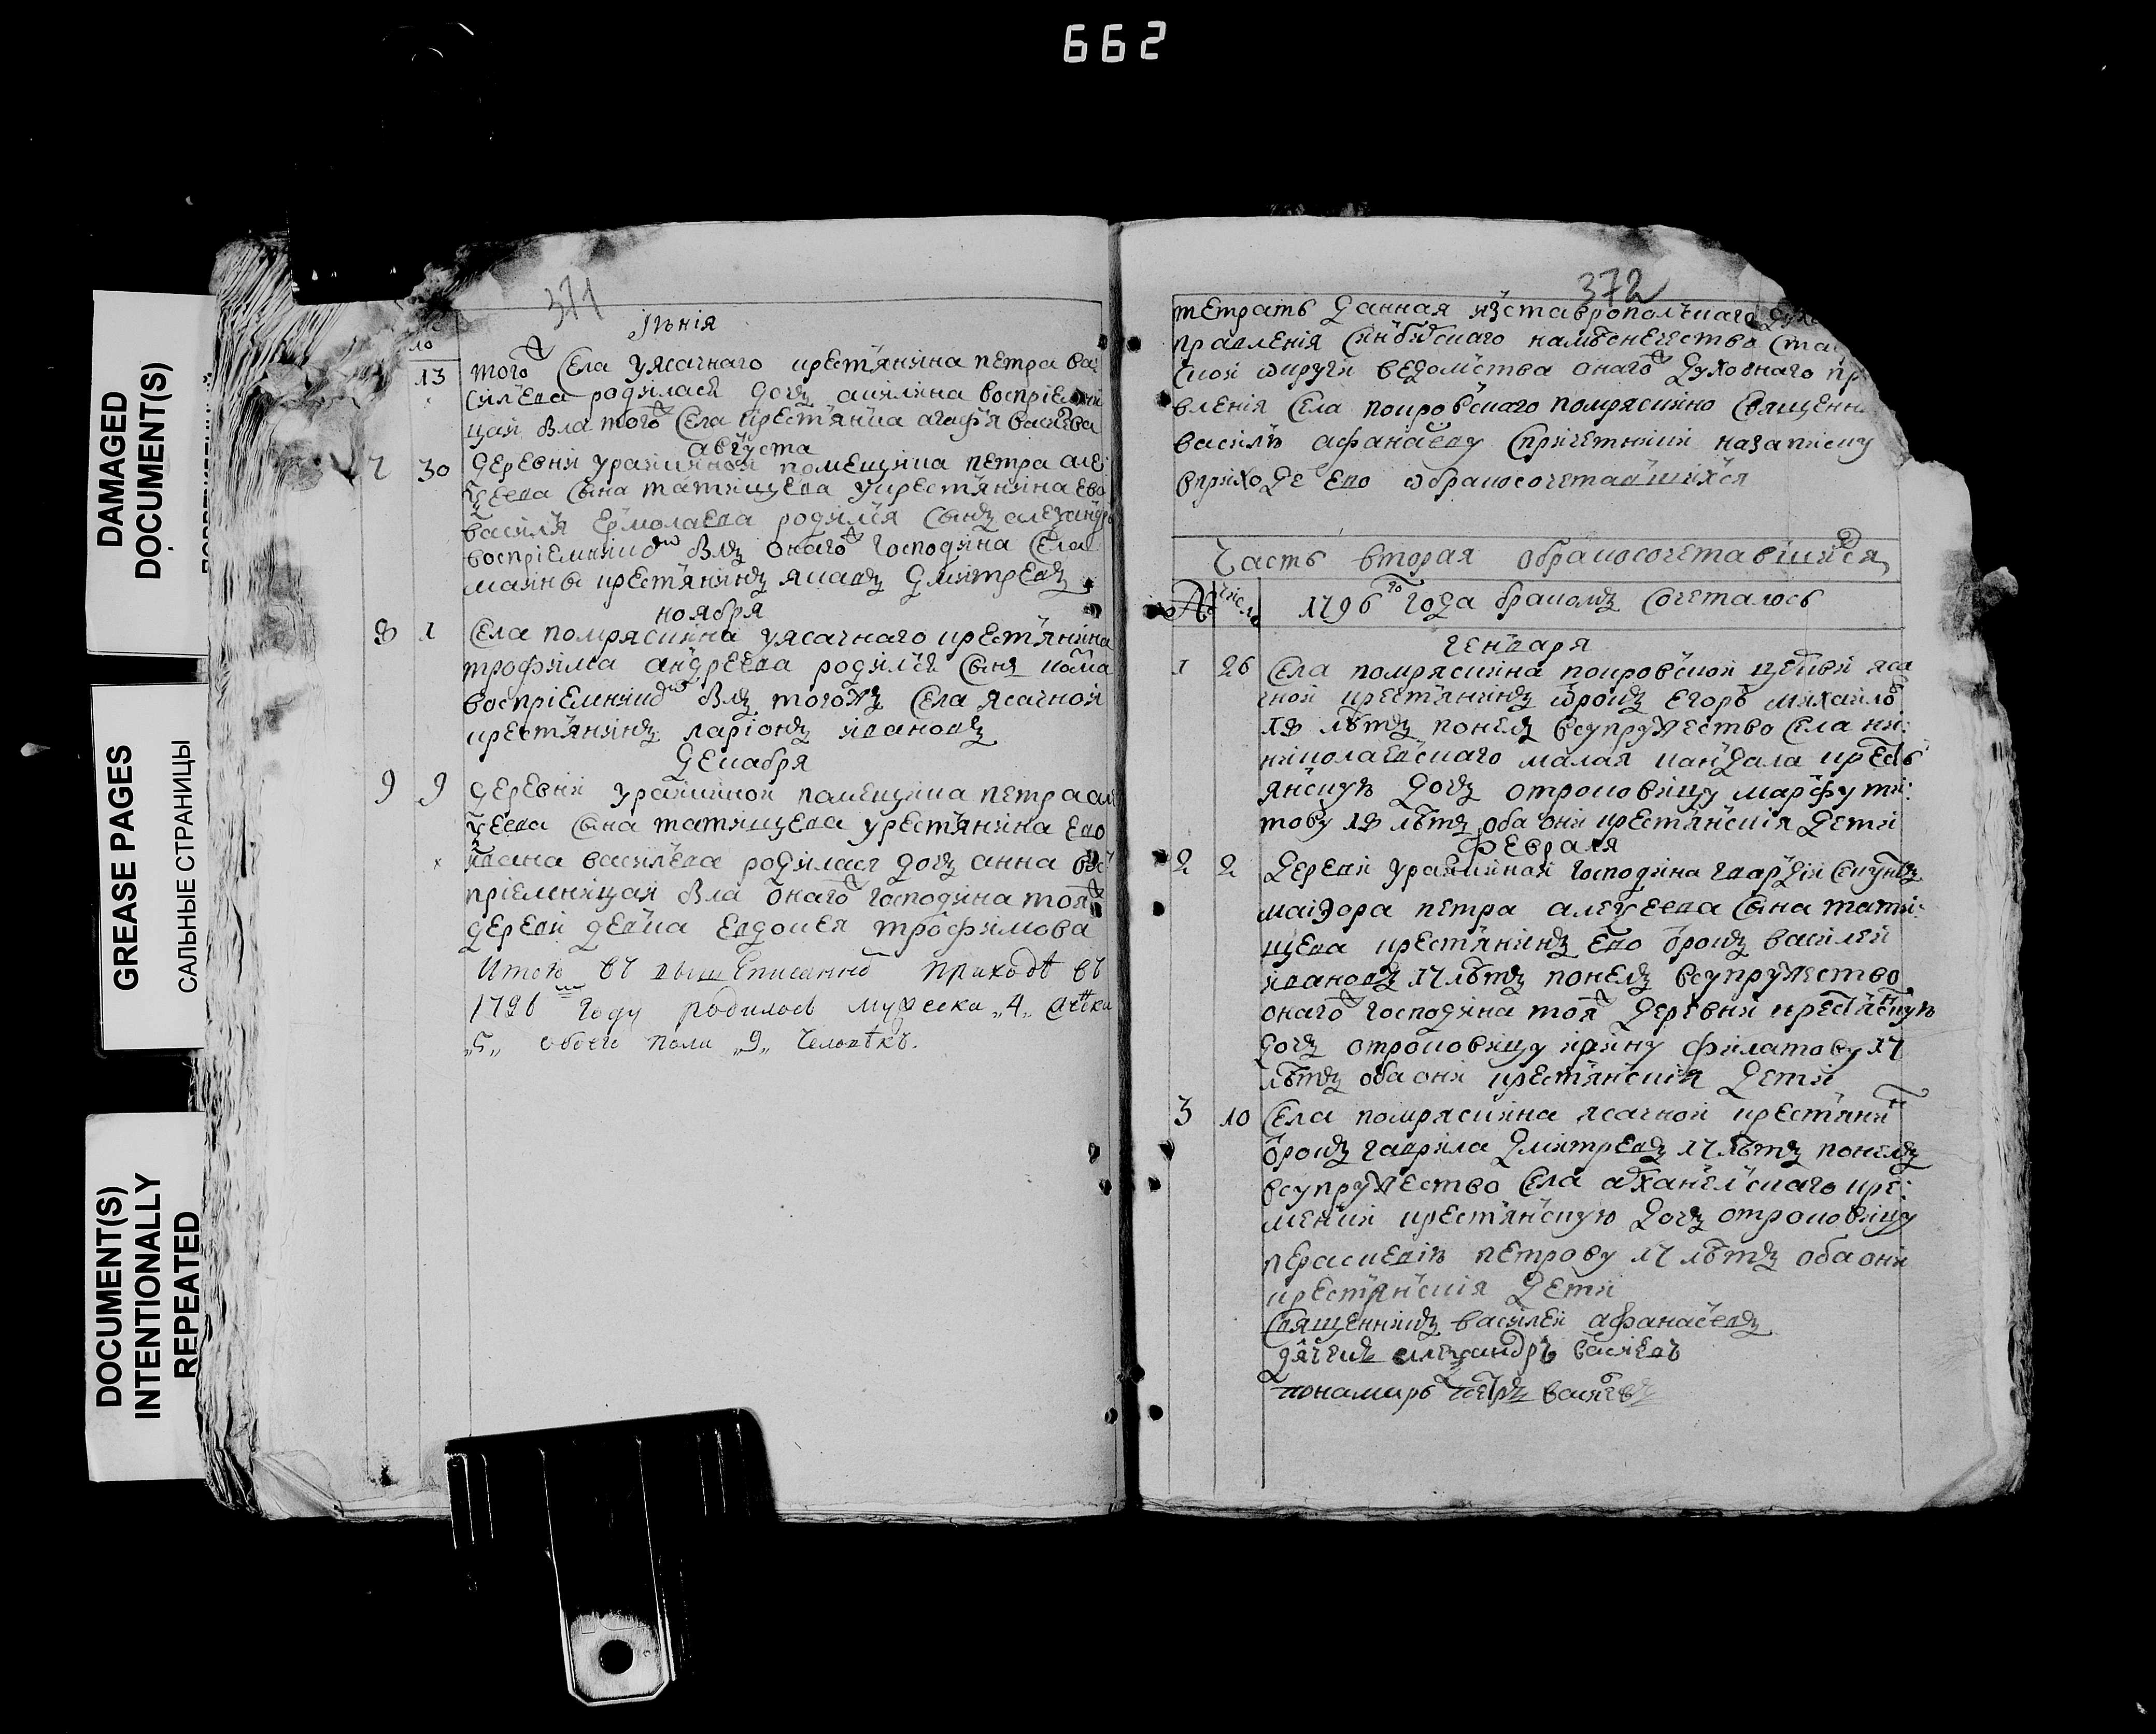 662
DAMAGED
DOCUMENT(S)
GREASE PAGES
САЛЬНЫЕ СТРАНИЦЫ
DOCUMENT(S)
INTENTIONALLY
REPEATED
371
Iюнiя
13 того села уясачнаго крестьянина петра ва
силева родилась дочь акилина воспрiемни
цай была того села крестьянка агафья
августа
7 30 деревни урайкиной помещика петра але
ѯеева сына татищева укрестьянина ево
василья ермолаева родился сынъ алеѯандръ
воспрiемникъ былъ онаго господина села
маины крестьянинъ яковъ дмитревъ
ноября
8 1 села помряскина уясачнаго крестьянина
трофима андреева родился сынъ кома
воспрiемникъ былъ тогожъ села ясачной
крестьянинъ ларiонъ ивановъ
декабря
9 9 деревни урайкиной помещика петра але
ѯеева сына татищева укрестьянина ево
ивана василева родилася дочь анна вос
прiемницай была онаго господина тояж
деревни девка евдокея трофимова
Итого въ вышеписанномъ приходѣ въ
1796 году родилось мужеска „4„ женска
„5„ обоего пола „9„ человѣкъ.
372
тетрать данная изставропольскаго духо
правленiя синбирскаго намѣснечества ста
ской округи ведомства онаго духовнаго пр
вленiя села покровскаго помряскино священни
василью афанасеву спричетники назаписку
вприходе ево обракосочетавшихся
Часть вторая обракосочетавшихся
№ число 1796го года бракомъ сочеталось
генваря
1 26 села помряскина покровской церкви яса
чной крестьянинъ отрокъ егоръ михаило
18 лѣтъ понелъ всупружество села ни
николаевскаго малая кандала кресть
янскую дочь отроковицу марфу ти
тову 18 лѣтъ оба они крестьянскiя дети
февраля
2 2 деревни урайкиной господина гвардiи секундъ
маiора петра алеѯеева сына тати
щева крестьянинъ ево отрокъ василей
ивановъ 17 лѣтъ понелъ всупружество
онаго господина тояж деревни крестьянскую
дочь отроковицу ирину филатову 17
лѣтъ оба они крестьянскiя дети
3 10 села помряскина ясачной крестьянин
отрокъ гаврила дмитревъ 17 лѣтъ понелъ
всупружество села архангелскаго кре
менки крестьянскую дочь отроковицу
перасковiю петрову 17 лѣтъ оба они
крестьянскiя дети
священникъ василей афанасевъ
дячекъ алеѯандръ василевъ
понамарь петръ василевъ